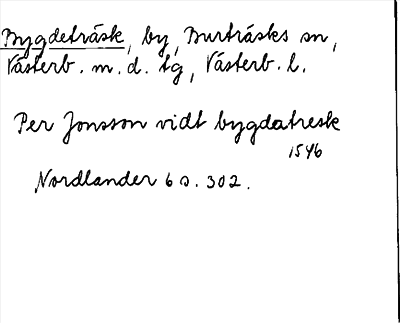 Bygdeträsk, by, Burträsks sn,
Västerb. m. d. tg, Västerb. l.
Per Jonsson vidt bygdatresk
1546
Nordlander 6 s. 302.